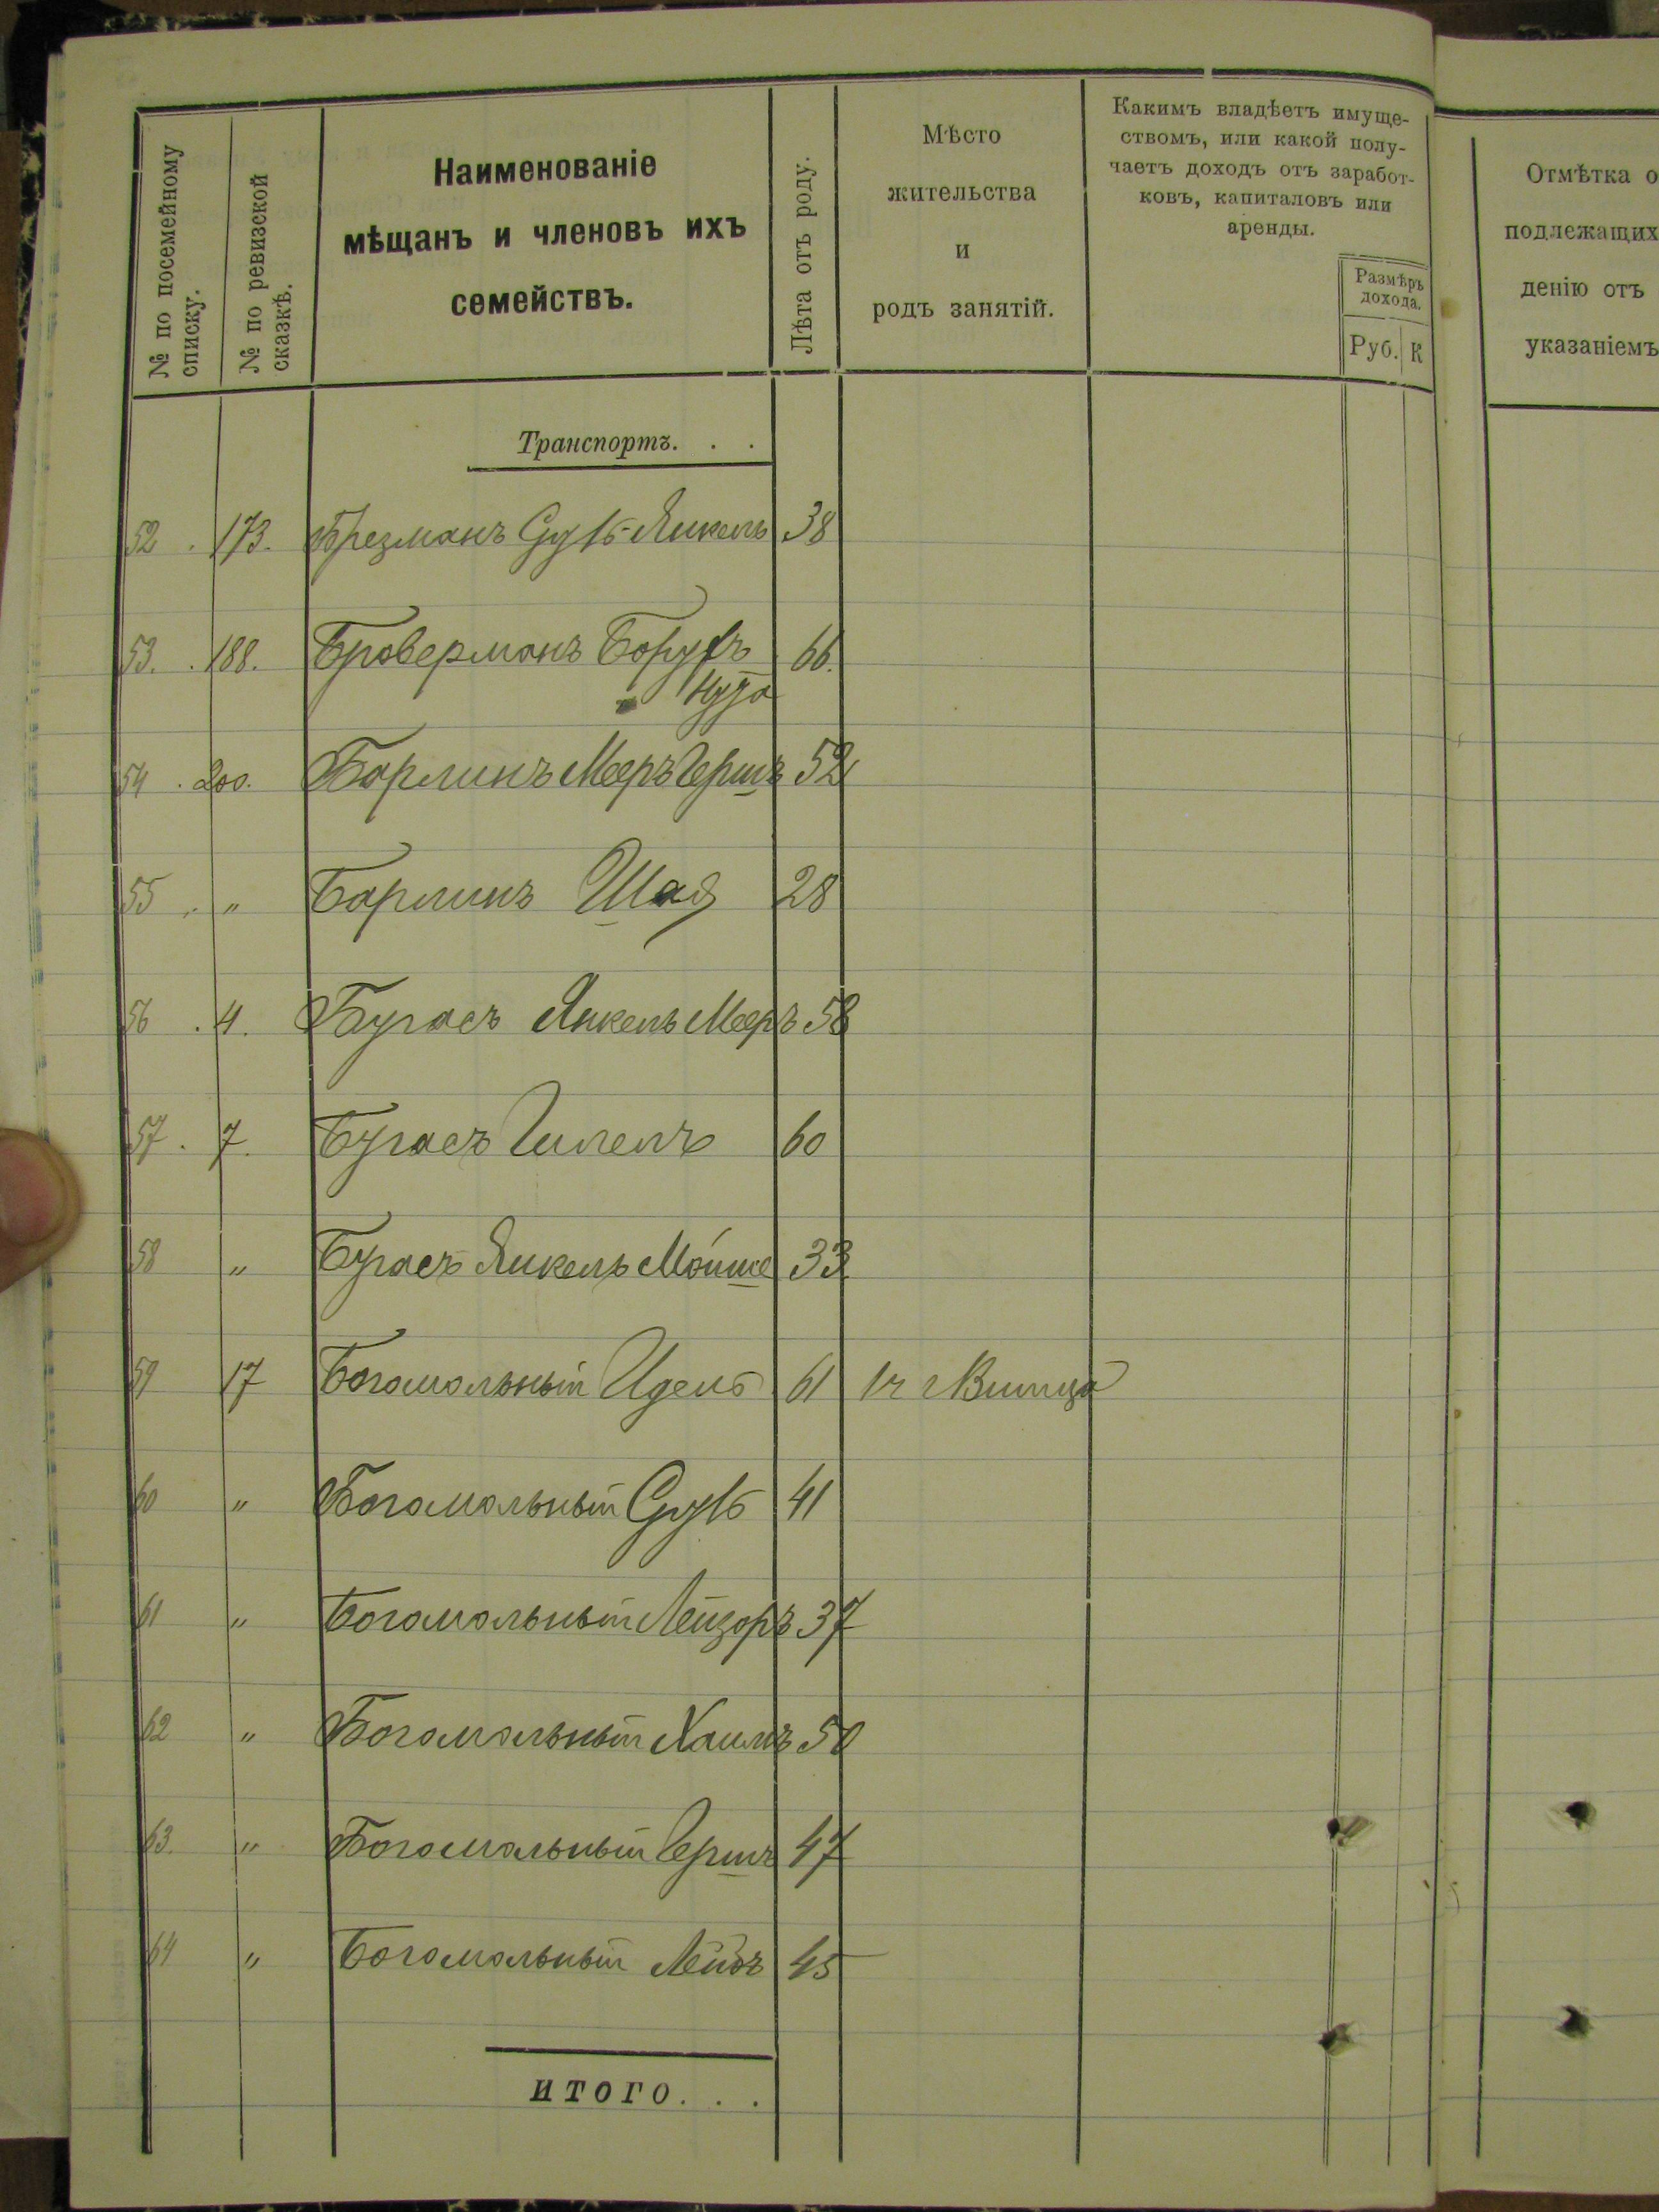 № по посемейному списку.
№ по ревизской сказкѣ.
Наименованіе
мѣщанъ и членовъ ихъ
семействъ.
Лѣта отъ роду.
Мѣсто
жительства
и
родъ занятій.
Какимъ владѣетъ имуще-
ствомъ, или какой полу-
чаетъ доходъ отъ заработ-
ковъ, капиталовъ или
аренды.
Размѣръ
дохода.
Руб. К
Отмѣтка о
подлежащих
денію отъ
указаніемъ
Транспортъ. . .
52 . 173. Брезманъ Сруль-Янкель 38
53. . 188. Броверманъ Борухъ 66.
Нута
54 . 200. Борлинъ Мееръ Гершъ 52
55 . " Борлинъ Шая 28
56 . 4. Бугаеъ Янкель Мееръ 58
57 . 7. Бугаеъ Гилелъ 60
58 " Бугаеъ Янкель Мойше 33
59 17 Богомольный Идель 61
60 " Богомольный Сруль 41
61 " Богомольный Лейзоръ 37
62 " Богомольный Хаимъ 50
63. " Богомольный Гершъ 47
64 " Богомольный Лейбъ 45
ИТОГО. . .